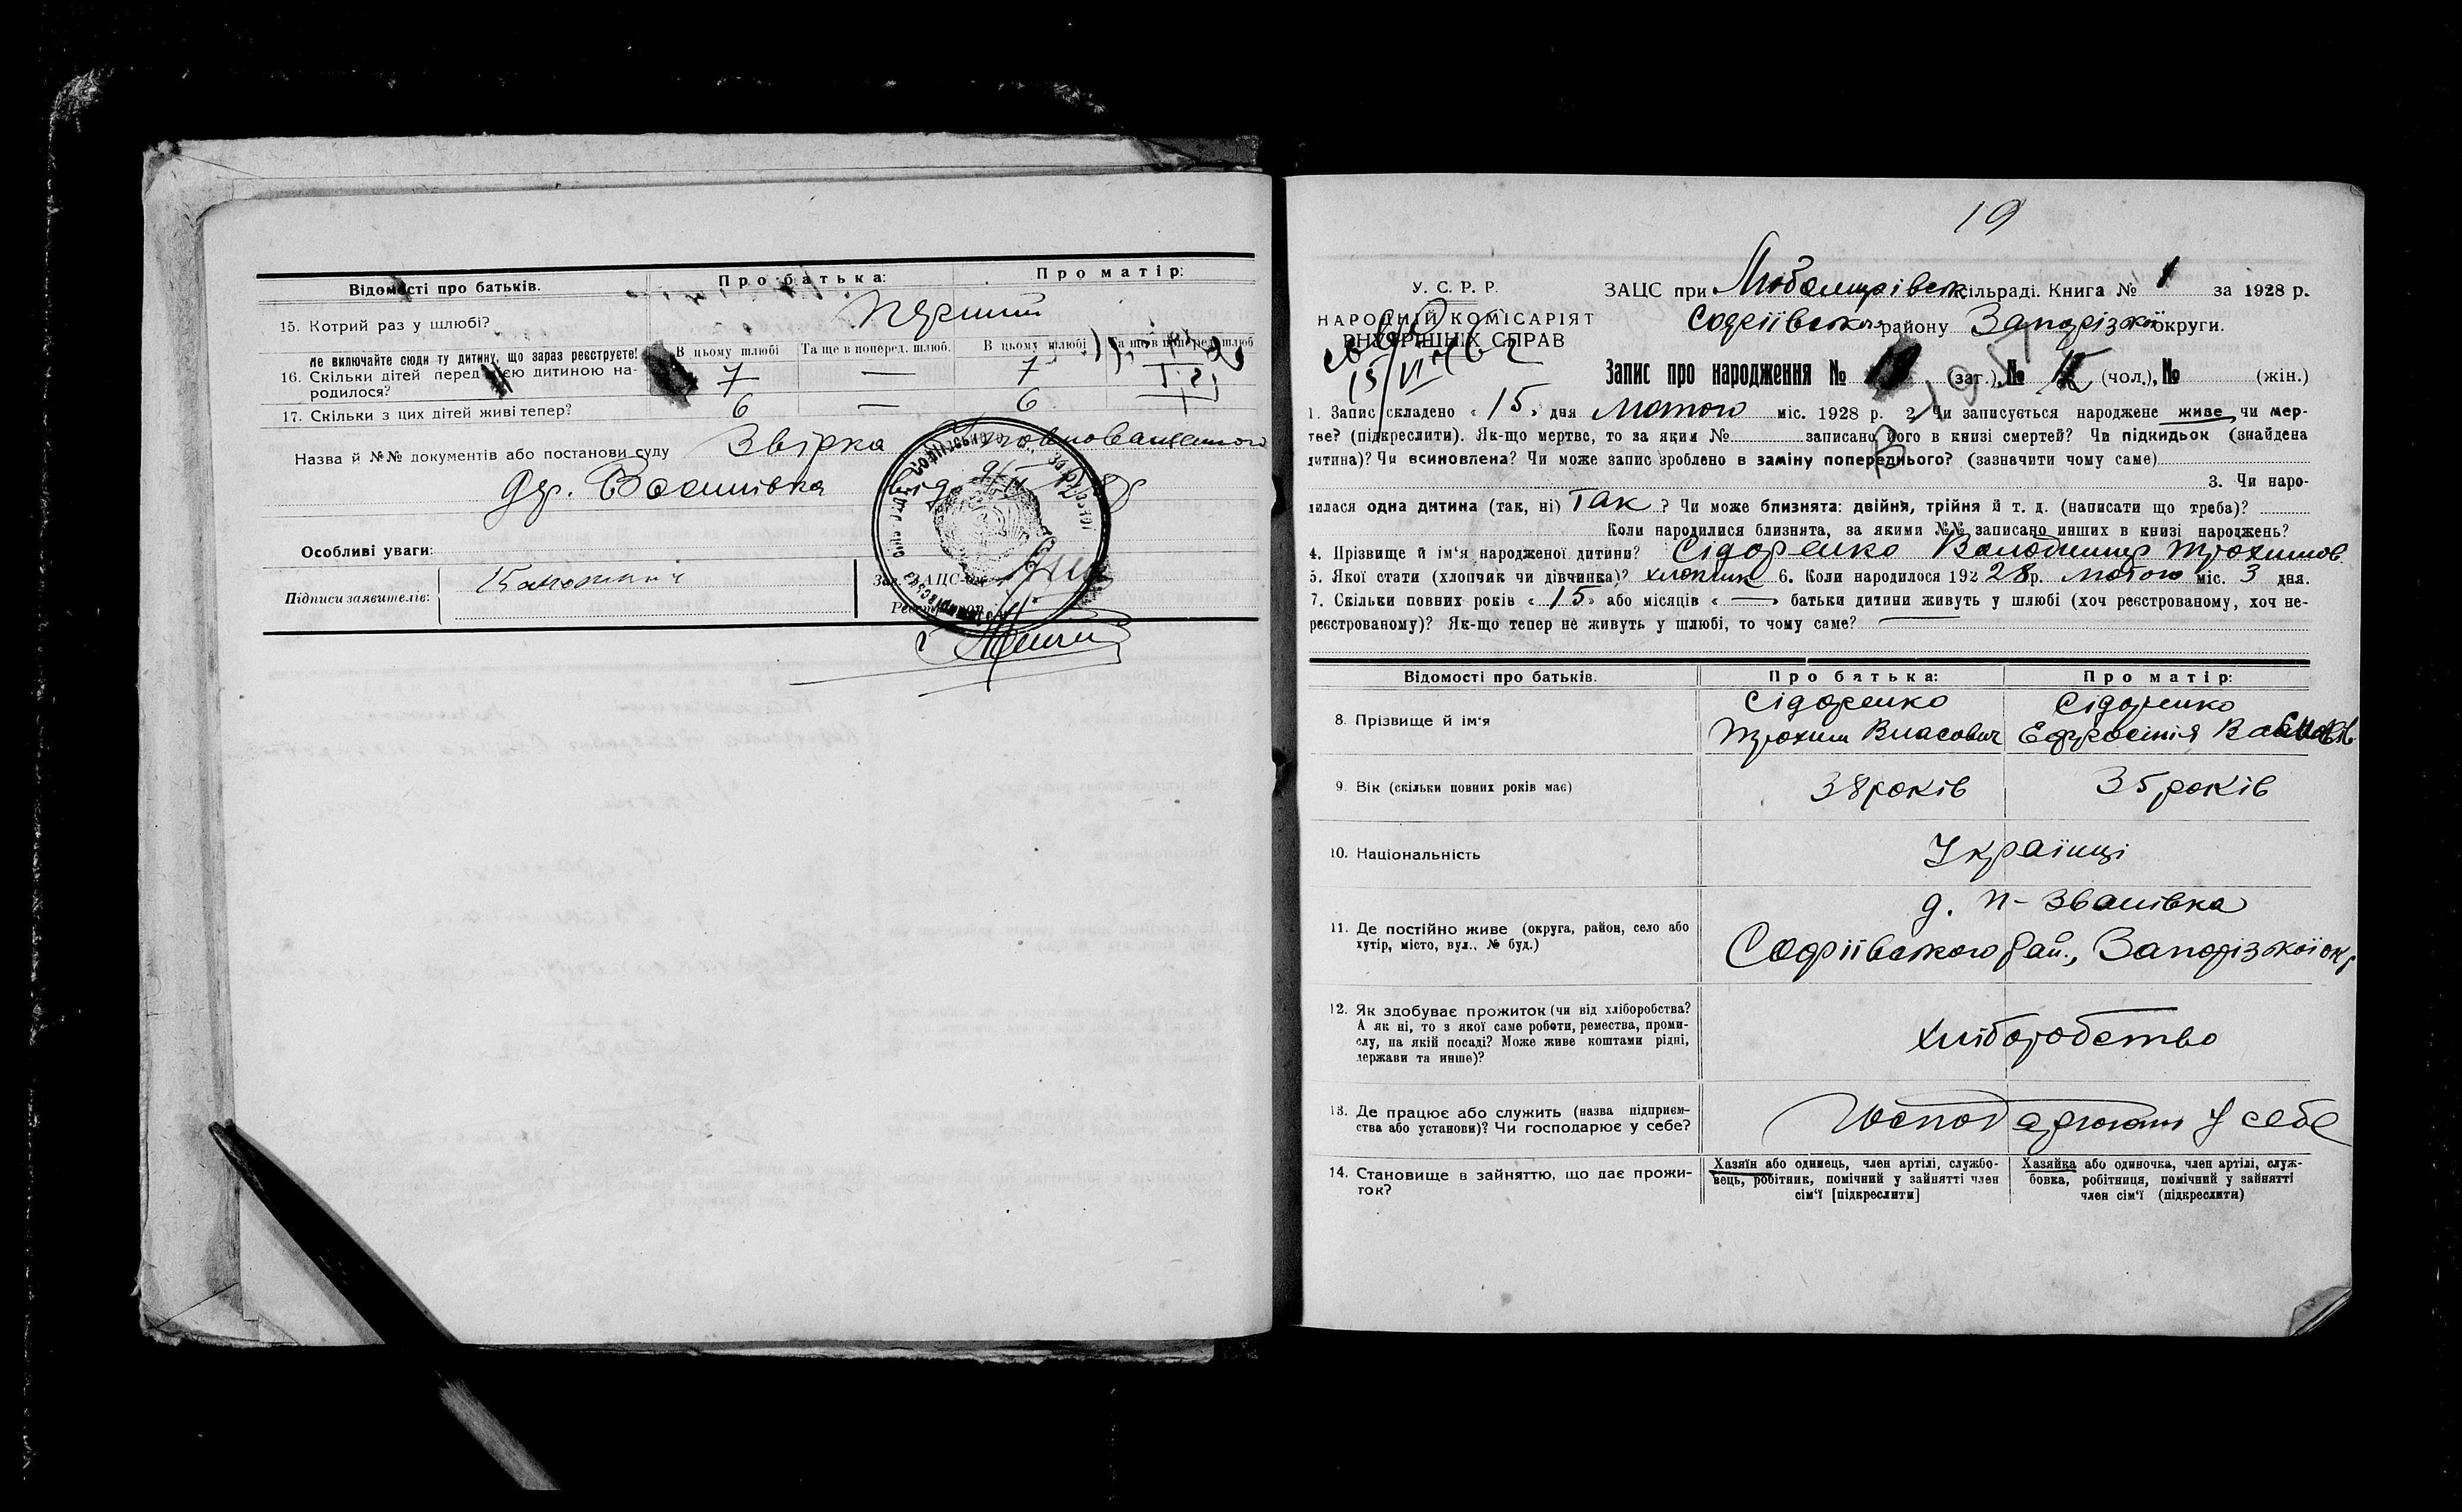 Відомості про батьків.
Про батька:
Про матір:
15. Котрий раз у шлюбі?
перший
Не включайте сюди ту дитину, що зараз реєструєте!
В цьому шлюбі
Та ще в поперед. шлюб.
В цьому шлюбі
Та ще в поперед. шлюб
16. Скільки дітей перед цією дитиною на-
родилося?
7 — 7
17. Скільки з цих дітей живі тепер?
6 — 6
Назва й №№ документів або постанови суду
Звірка
від
Особливі уваги:
Підписи заявителів:
19
У. С. Р. Р.
НАРОДНІЙ КОМІСАРІЯТ
ВНУТРІШНІХ СПРАВ
15/VI
ЗАЦС при Любомирівськ сільраді. Книга № 1 за 1928 р.
Софіївського району Запорізької округи.
Запис про народження № (заг.), № (чол.), № (жін.)
1. Запис складено « 15 » дня Лютого міс. 1928 р. 2. Чи записується народжене живе, чи мер-
тве? (підкреслити). Як-що мертве, то за яким № записано його в книзі смертей? Чи підкидьок (знайдена
дитина)? Чи всиновлена? Чи може запис зроблено в заміну попереднього? (зазначити чому саме)
3. Чи наро-
дилася одна дитина (так, ні) так ? Чи може близнята: двійня, трійня й т. д. (написати що треба)?
Коли народилися близнята, за якими №№ записано инших в книзі народжень?
4. Прізвище й ім'я народженої дитини? Сідоренко Володимир Трохимов
5. Якої стати (хлопчик чи дівчинка)? хлопчик 6. Коли народилося 192 28 р. лютого міс. 3 дня.
7. Скільки повних років « 15 » або місяців « — » батьки дитини живуть у шлюбі (хоч реєстрованому, хоч не-
реєстрованому)? Як-що тепер не живуть у шлюбі, то чому саме? —
Відомості про батьків.
Про батька:
Про матір:
8. Прізвище й ім'я
Сідоренко
Трохим Власович
Сідоренко
Ефросинія
9. Вік (скільки повних років має)
38 років
35 років
10. Національність
Українці
11. Де постійно живе (округа, район, село або
хутір, місто, вул., № буд.)
д. п-Званівка
Софіївського рай., Запорізької окр
12. Як здобуває прожиток (чи від хліборобства?
А як ні, то з якої саме роботи, ремества, проми-
слу, на якій посаді? Може живе коштами рідні,
держави та инше)?
хліборобство
13. Де працює або служить (назва підприєм-
ства або установи)? Чи господарює у себе?
Господарюють у себе
14. Становище в зайняттю, що дає прожи-
ток?
Хазяїн або одинець, член артілі, службо-
вець, робітник, помічний у зайнятті член
сім'ї [підкреслити]
Хазяйка або одиночка, член артілі, служ-
бовка, робітниця, помічний у зайнятті
член сім'ї (підкреслити)